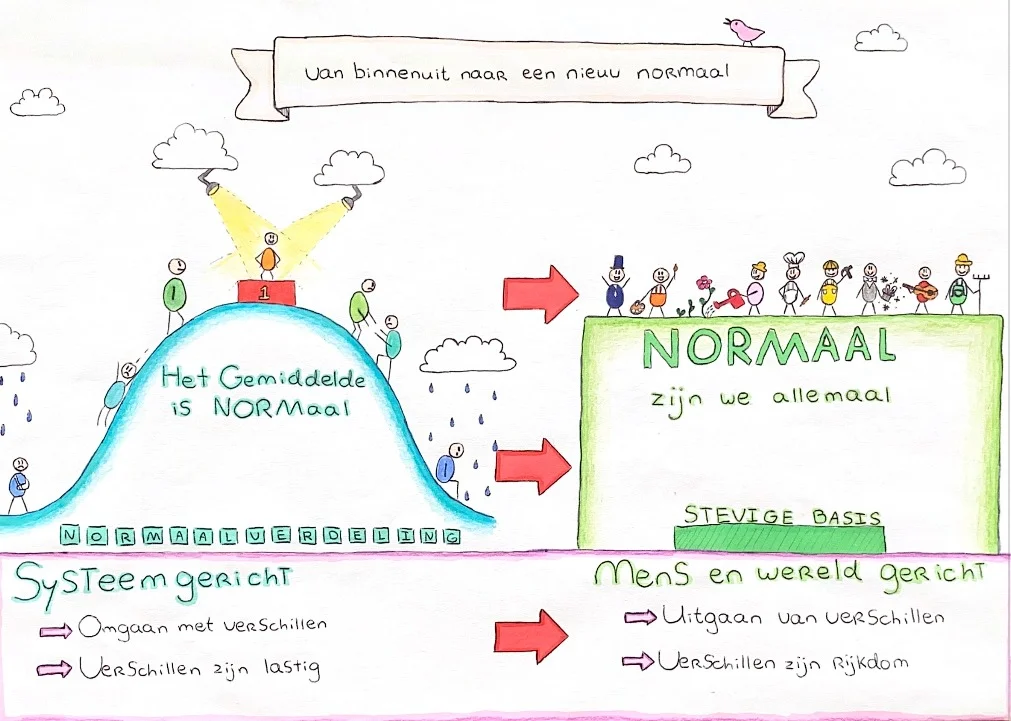 Van binnenuit naar een nieuw normaal
1
Het Gemiddelde
is NORMaal
NORMAALVERDELING
NORMAAL
zijn we allemaal
STEVIGE BASIS
Systeem gericht
Omgaan met verschillen
Verschillen zijn lastig
Mens en wereld gericht
Uitgaan van verschillen
Verschillen zijn Rijkdom